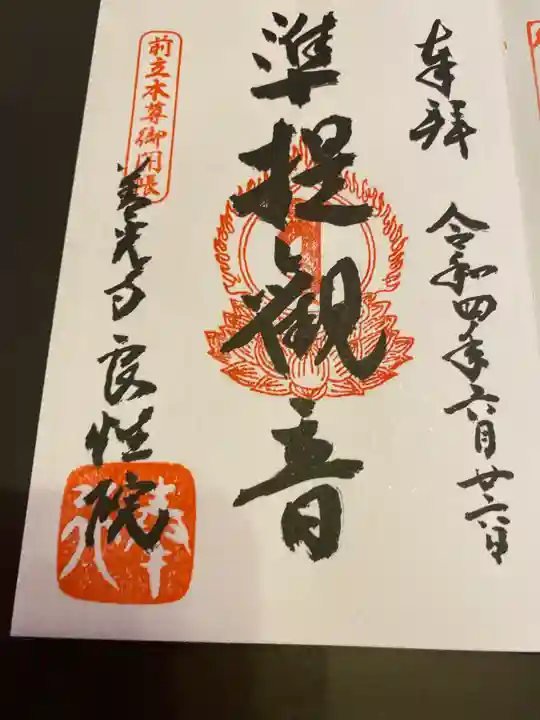 奉拝
令和四年六月廿六日
準提観音
前立本尊御開帳
善光寺良性院